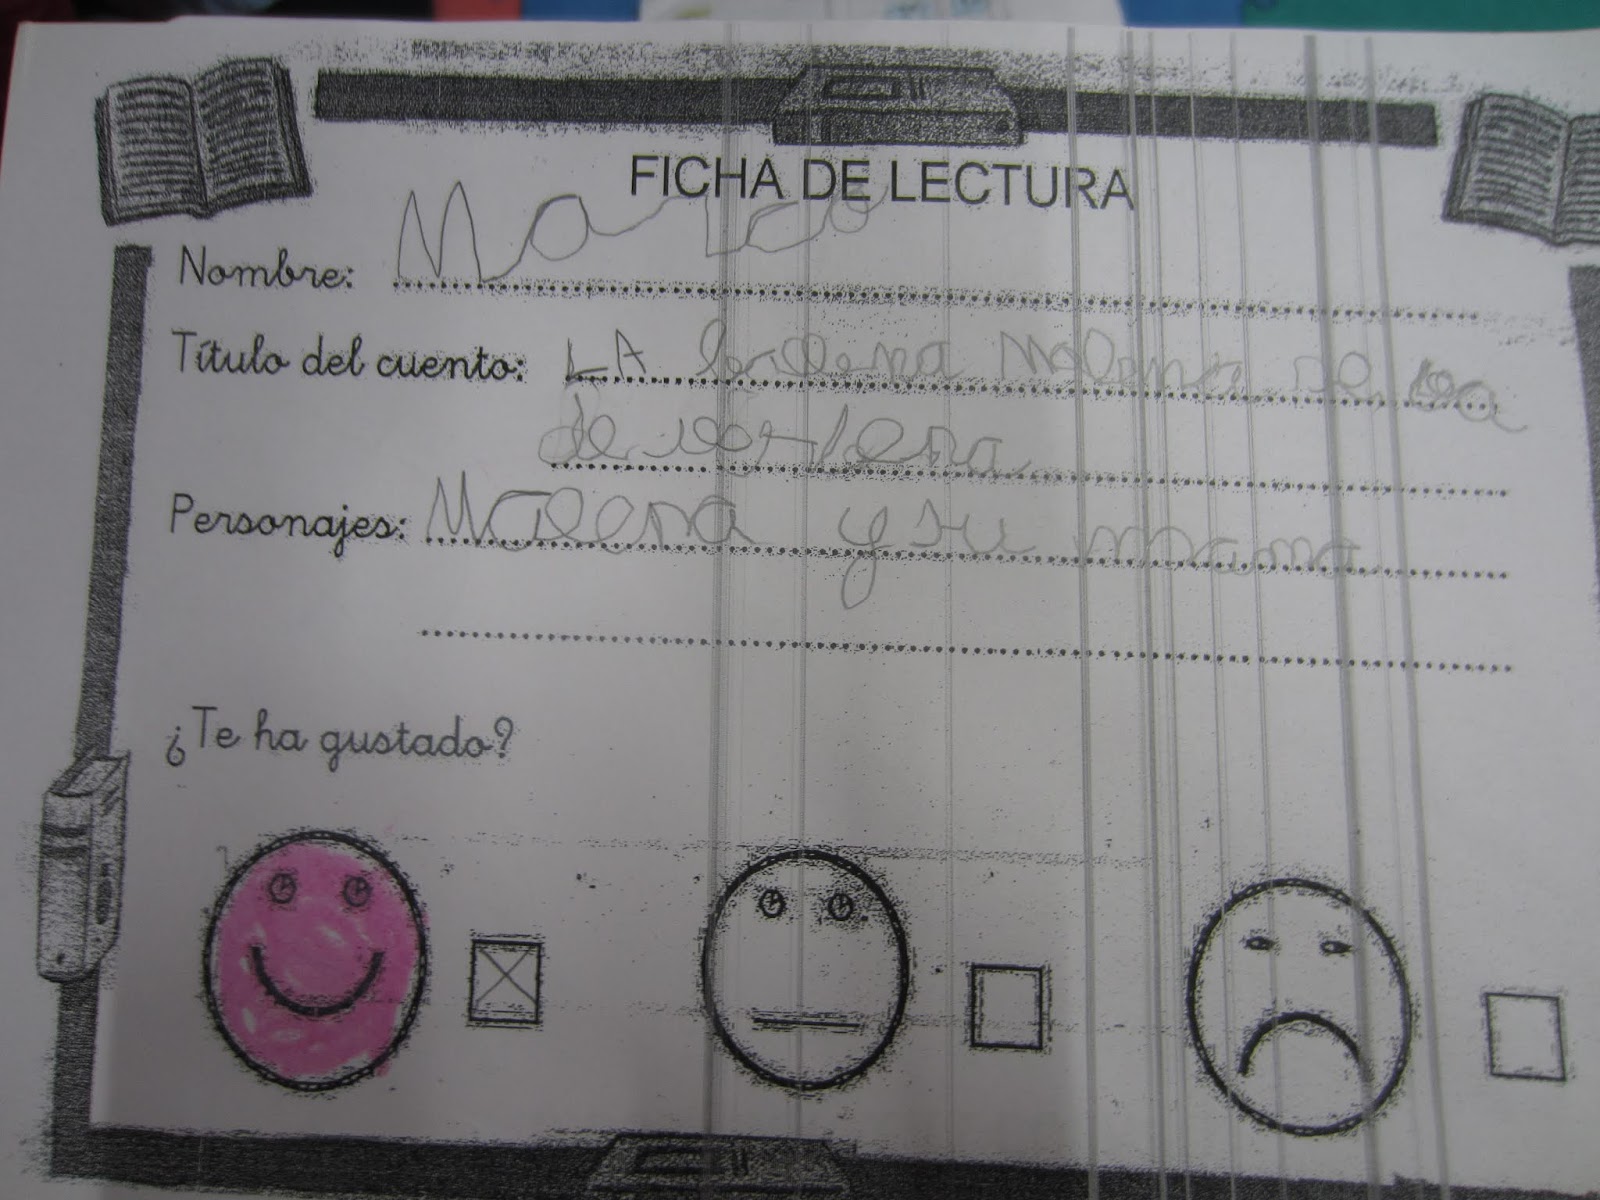 FICHA DE LECTURA
Nombre: Marco
Título del cuento: LA ballena Malena se
de
Personajes: Malena y su mama
¿Te ha gustado?